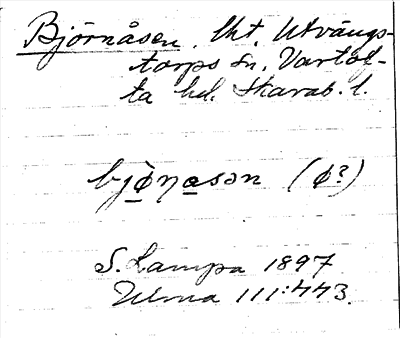 Björnåsen, lht. Utvängs-
torps sn. Vartof-
ta hd. Skarab. l.
bjò̱ŋa̱sən (ø̱?)
S. Lampa 1897
Ulma 111:443.